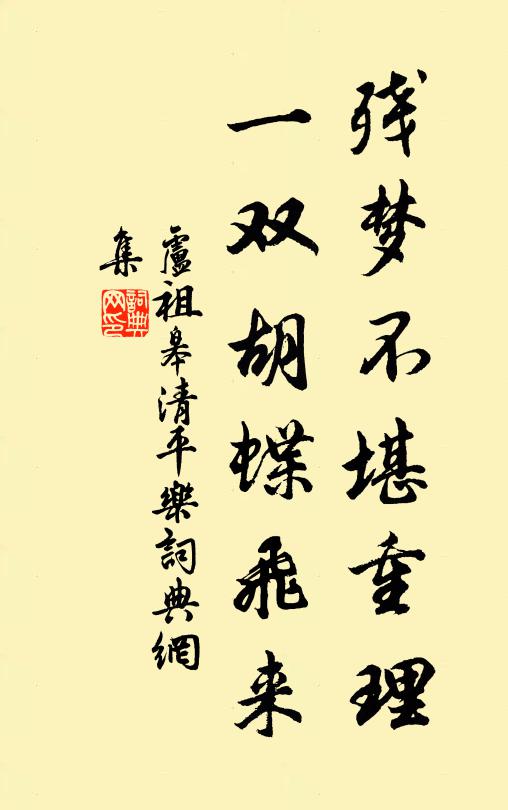 残梦不堪重理
一双胡蝶飛来
盧祖皋清平樂詞典網
集
詞典
网印